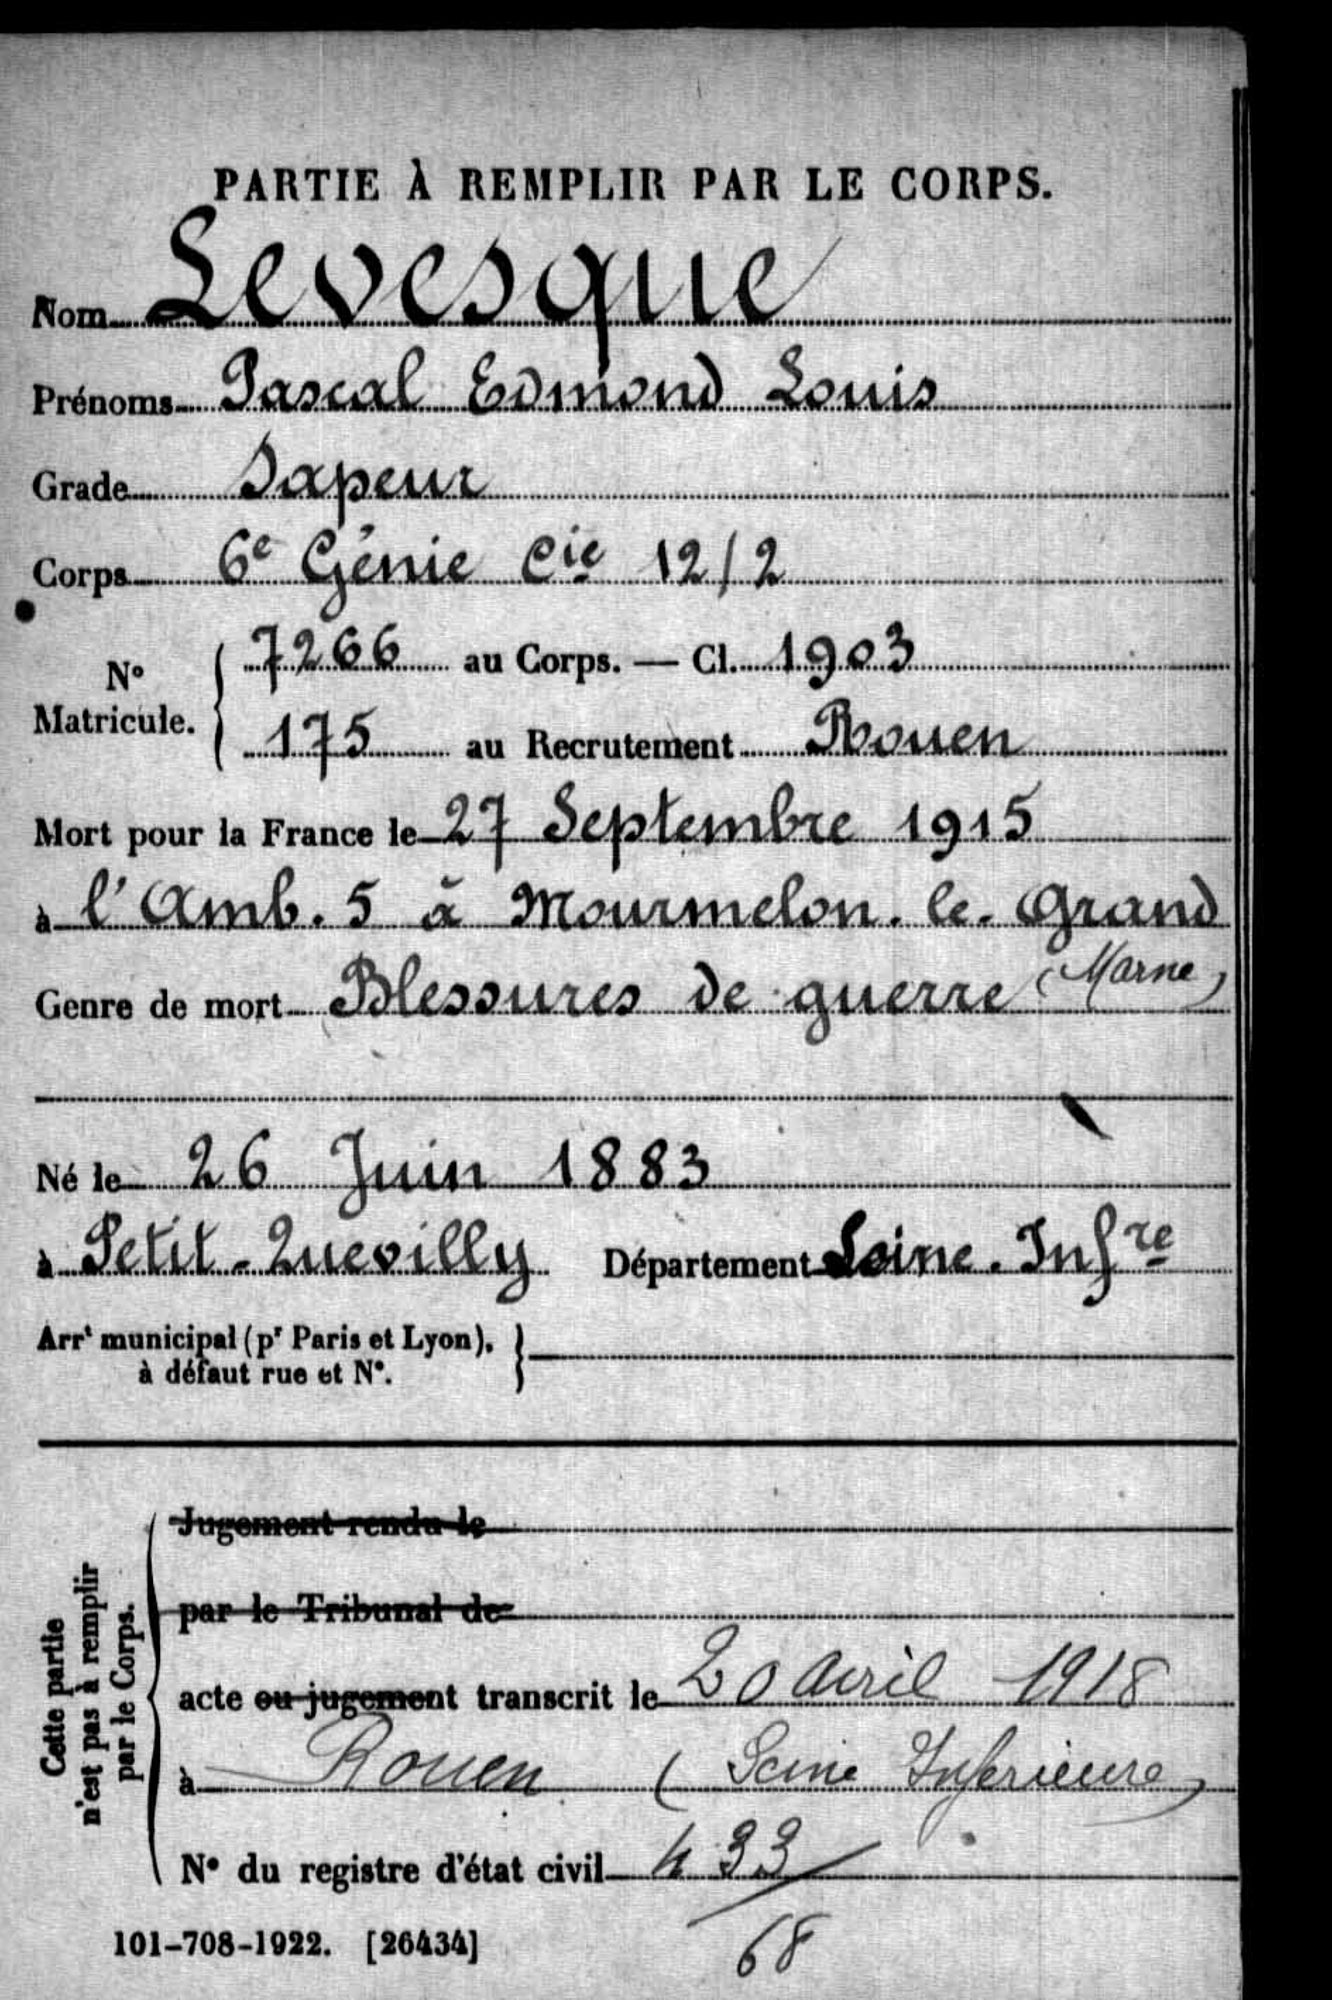 PARTIE À REMPLIR PAR LE CORPS.
Nom Levesque
Prénoms Pascal Edmond Louis
Grade Sapeur
Corps 6e Génie Cie 12/2
N° Matricule. { 7266 au Corps. — Cl. 1903
175 au Recrutement Rouen
Mort pour la France le 27 Septembre 1915
à l'Amb. 5 à Mourmelon. le. Grand
(Marne)
Genre de mort Blessures de guerre
Né le 26 Juin 1883
à Petit-Quevilly Département Seine. Infre
Arrt municipal (pr Paris et Lyon), à défaut rue et N°. }
Cette partie n'est pas à remplir par le Corps.
Jugement rendu le
par le Tribunal de
acte ou jugement transcrit le 20 avril 1918
à Rouen (Seine Inférieure)
N° du registre d'état civil 433/68
101-708-1922. [26434]